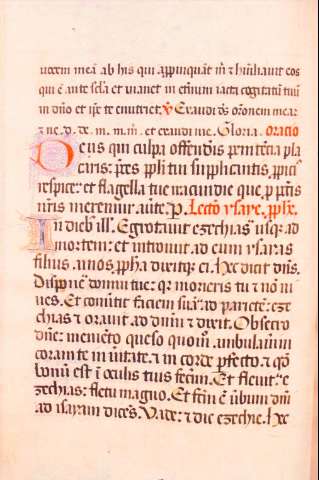 vocem meā ab his qui appropinquāt m̄ ⁊ humiliauit eos
qui ē ante scľa et manet in eternum iacta cogitatū tuū
in dn̄o et ip̄e te enutriet. ℣ Exaudi ds̄ or̄onem meā
⁊ ne. d. de. m. m. m̄. et exaudi me. Gloria. oratio
Deus qui culpa offendis penitētia pla
caris: preces pp̄li tui supplicantis, ppici⁹
respice: et flagella tue iracundie que p pctīs
nr̄is meremur auerte. P. Lectio ysaye. pp̄he.
In dieb⁹ ill̄. Egrotauit ezechias usq̄ ad
mortem: et introiuit ad eum ysaias
filius amos, pp̄ha dixitq̄ ei. Hec dicit dn̄s.
Dispone domui tue: q̄ morieris tu ⁊ nō ui
ues. Et conuertit faciem suā ad parietē: eze
chias ⁊ orauit ad dn̄m ⁊ dixit. Obsecro
dn̄e: memēto queso quom̄o ambulauerim
coram te in ūitate ⁊ in corde pfecto ⁊ qđ
bonū est ī oculis tuis fecerim. Et fleuit e
zechias: fletu magno. Et factū ē ūbum dn̄i
ad isaiam dicēs. Vade: ⁊ dic ezechie. Hec